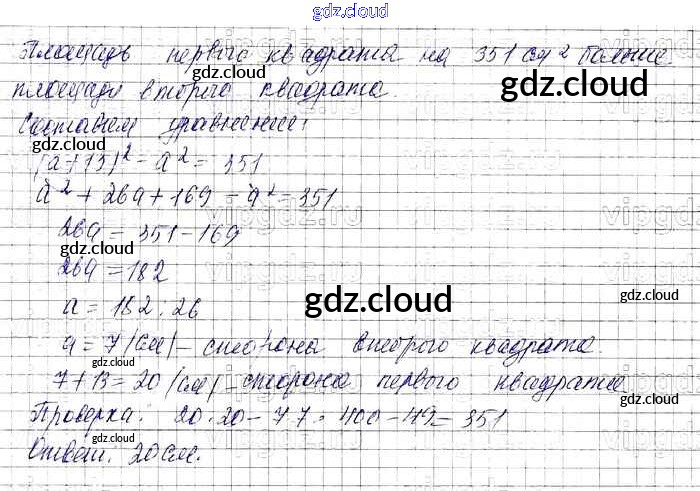 gdz.cloud
Площадь первого квадрата на 351 см² больше
gdz.cloud
gdz.cloud
площади второго квадрата.
Составим уравнение:
gdz.cloud
(a+13)² - a² = 351
a² + 26a + 169 - a² = 351
vipgdz.ru
26a = 351-169
gdz.cloud
26a = 182
gdz.cloud
gdz.cloud
a = 182 : 26
a = 7 (см) - сторона второго квадрата.
gdz.cloud
7+13 = 20 (см) - сторона первого квадрата
gdz.cloud
Проверка: 20·20 - 7·7 = 400 - 49 = 351
gdz.cloud
Ответ: 20 см.